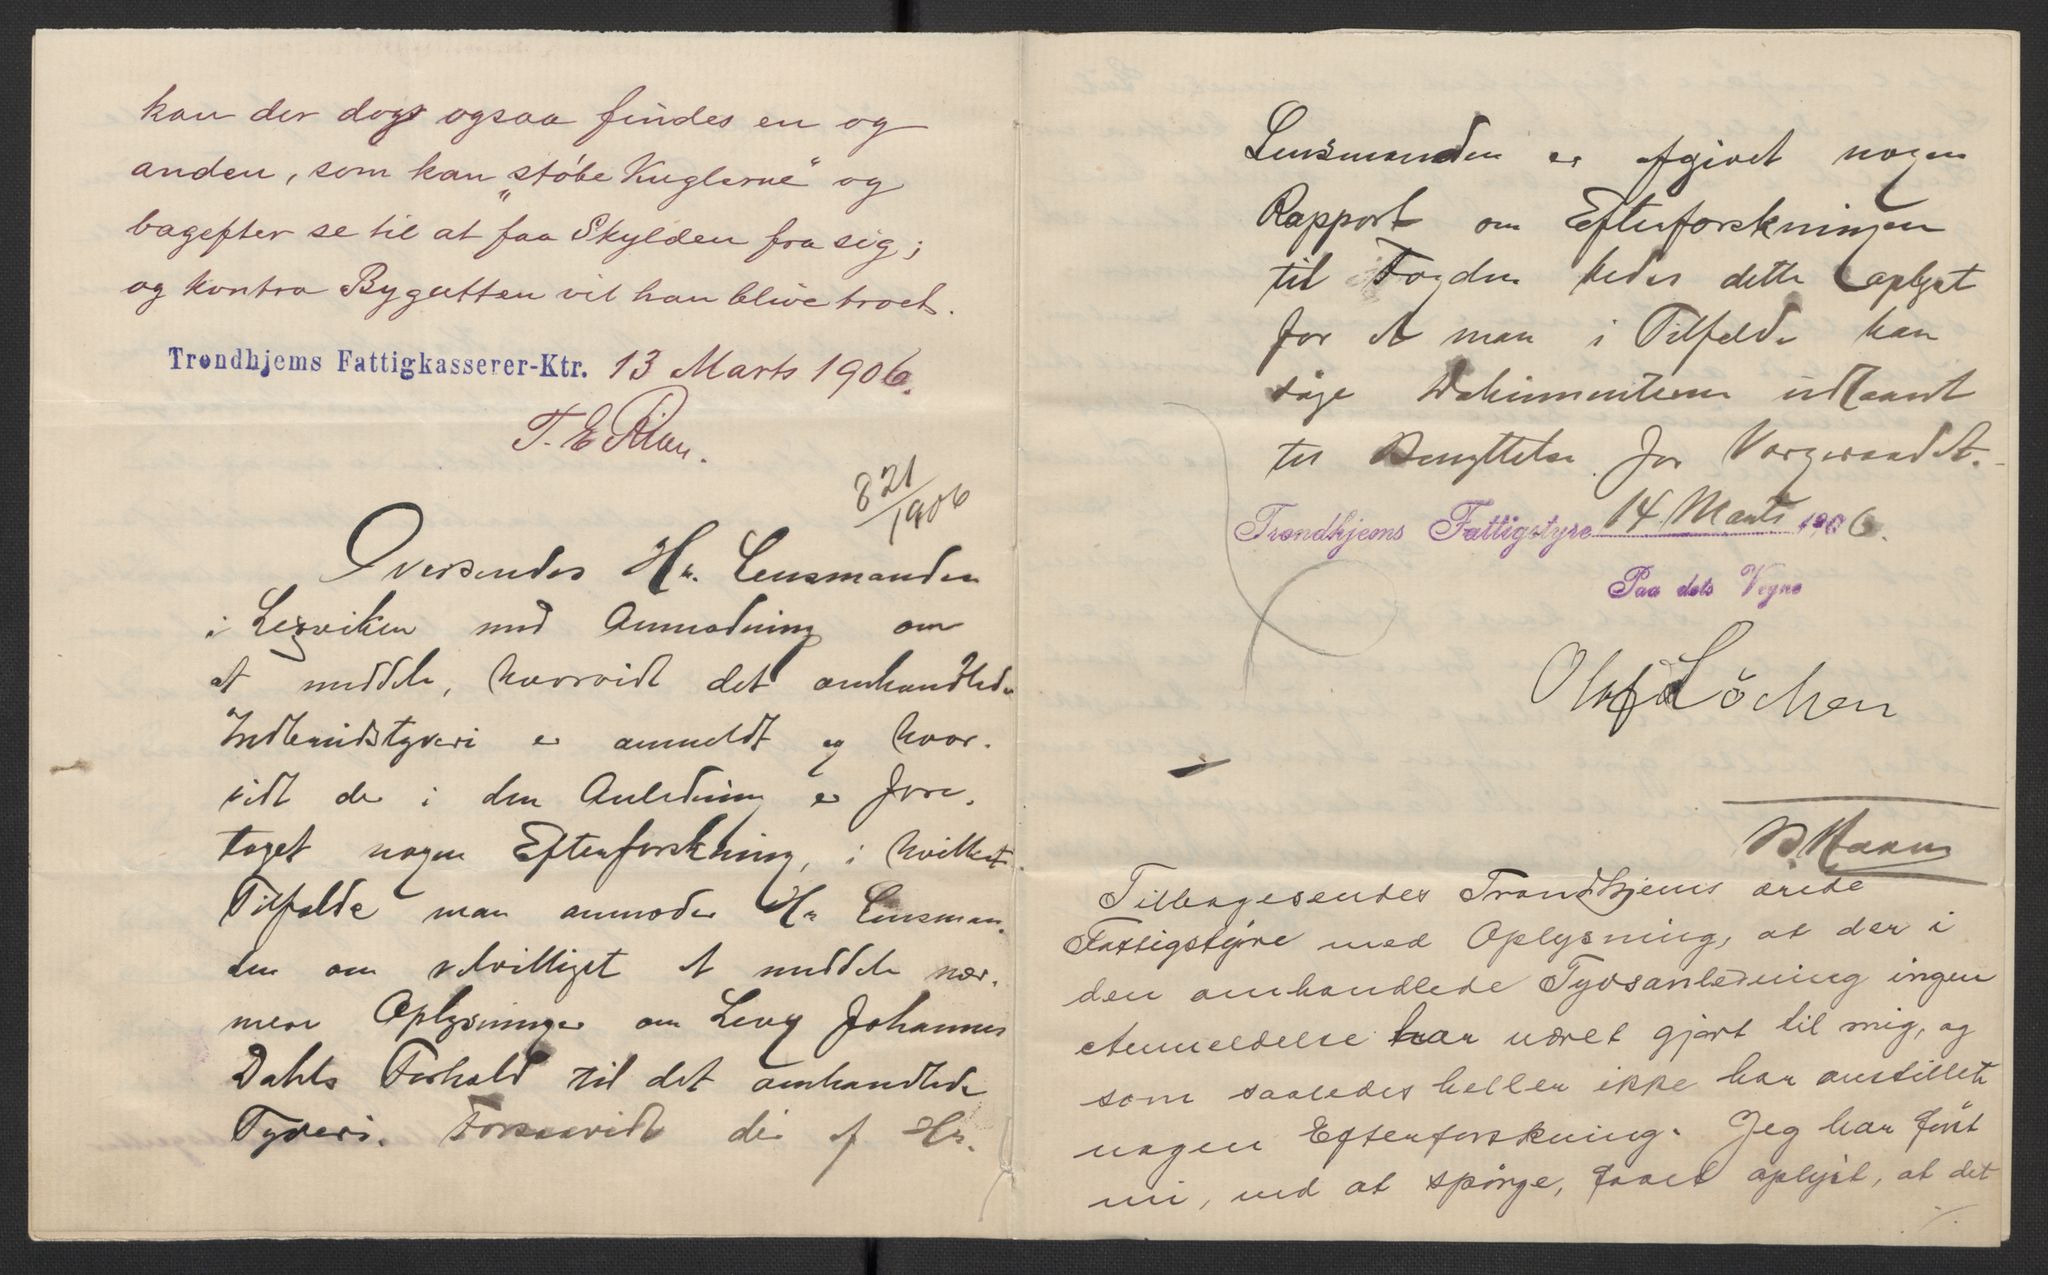 kan der dog ogsaa findes en og
anden, som kan „støbe Kuglerne“ og
bagefter se til at faa Skylden fra sig;
og kontra Bygutten vil han blive troet.
Trondhjems Fattigkasserer-Ktr. 13 Marts 1906.
T. E.
821/1906
Oversendes Hr. Lensmanden
i Lexviken med Anmodning om
at meddele, hvorvidt det omhandlede
Indbrudstyveri er anmeldt og hvor-
vidt der i den Anledning er fore-
taget nogen Efterforskning, i hvilket
Tilfælde man anmoder Hr Lensman-
den om velvilligst at meddele nær-
mere Oplysninger om Levy Johannes
Dahls Forhold til det omhandlede
Tyveri. Forsaavidt der af Hr.
Lensmanden er afgivet nogen
Rapport om Efterforskningen
til Fogden bedes dette oplyst
for at man i Tilfælde kan
søge Dokumenterne udlaant
til Benyttelse for Vergeraadet.
Trondhjems Fattigstyre 14. Marts 1906.
Paa dets Vegne
Olaf Löchen
Tilbagesendes Trondhjems ærede
Fattigstyre med Oplysning, at der i
den omhandlede Tyvsanledning ingen
Anmeldelse har været gjort til mig, og
som saaledes heller ikke har anstillet
nogen Efterforskning. Jeg har först
nu, ved at spörge, faaet oplyst, at det
./.